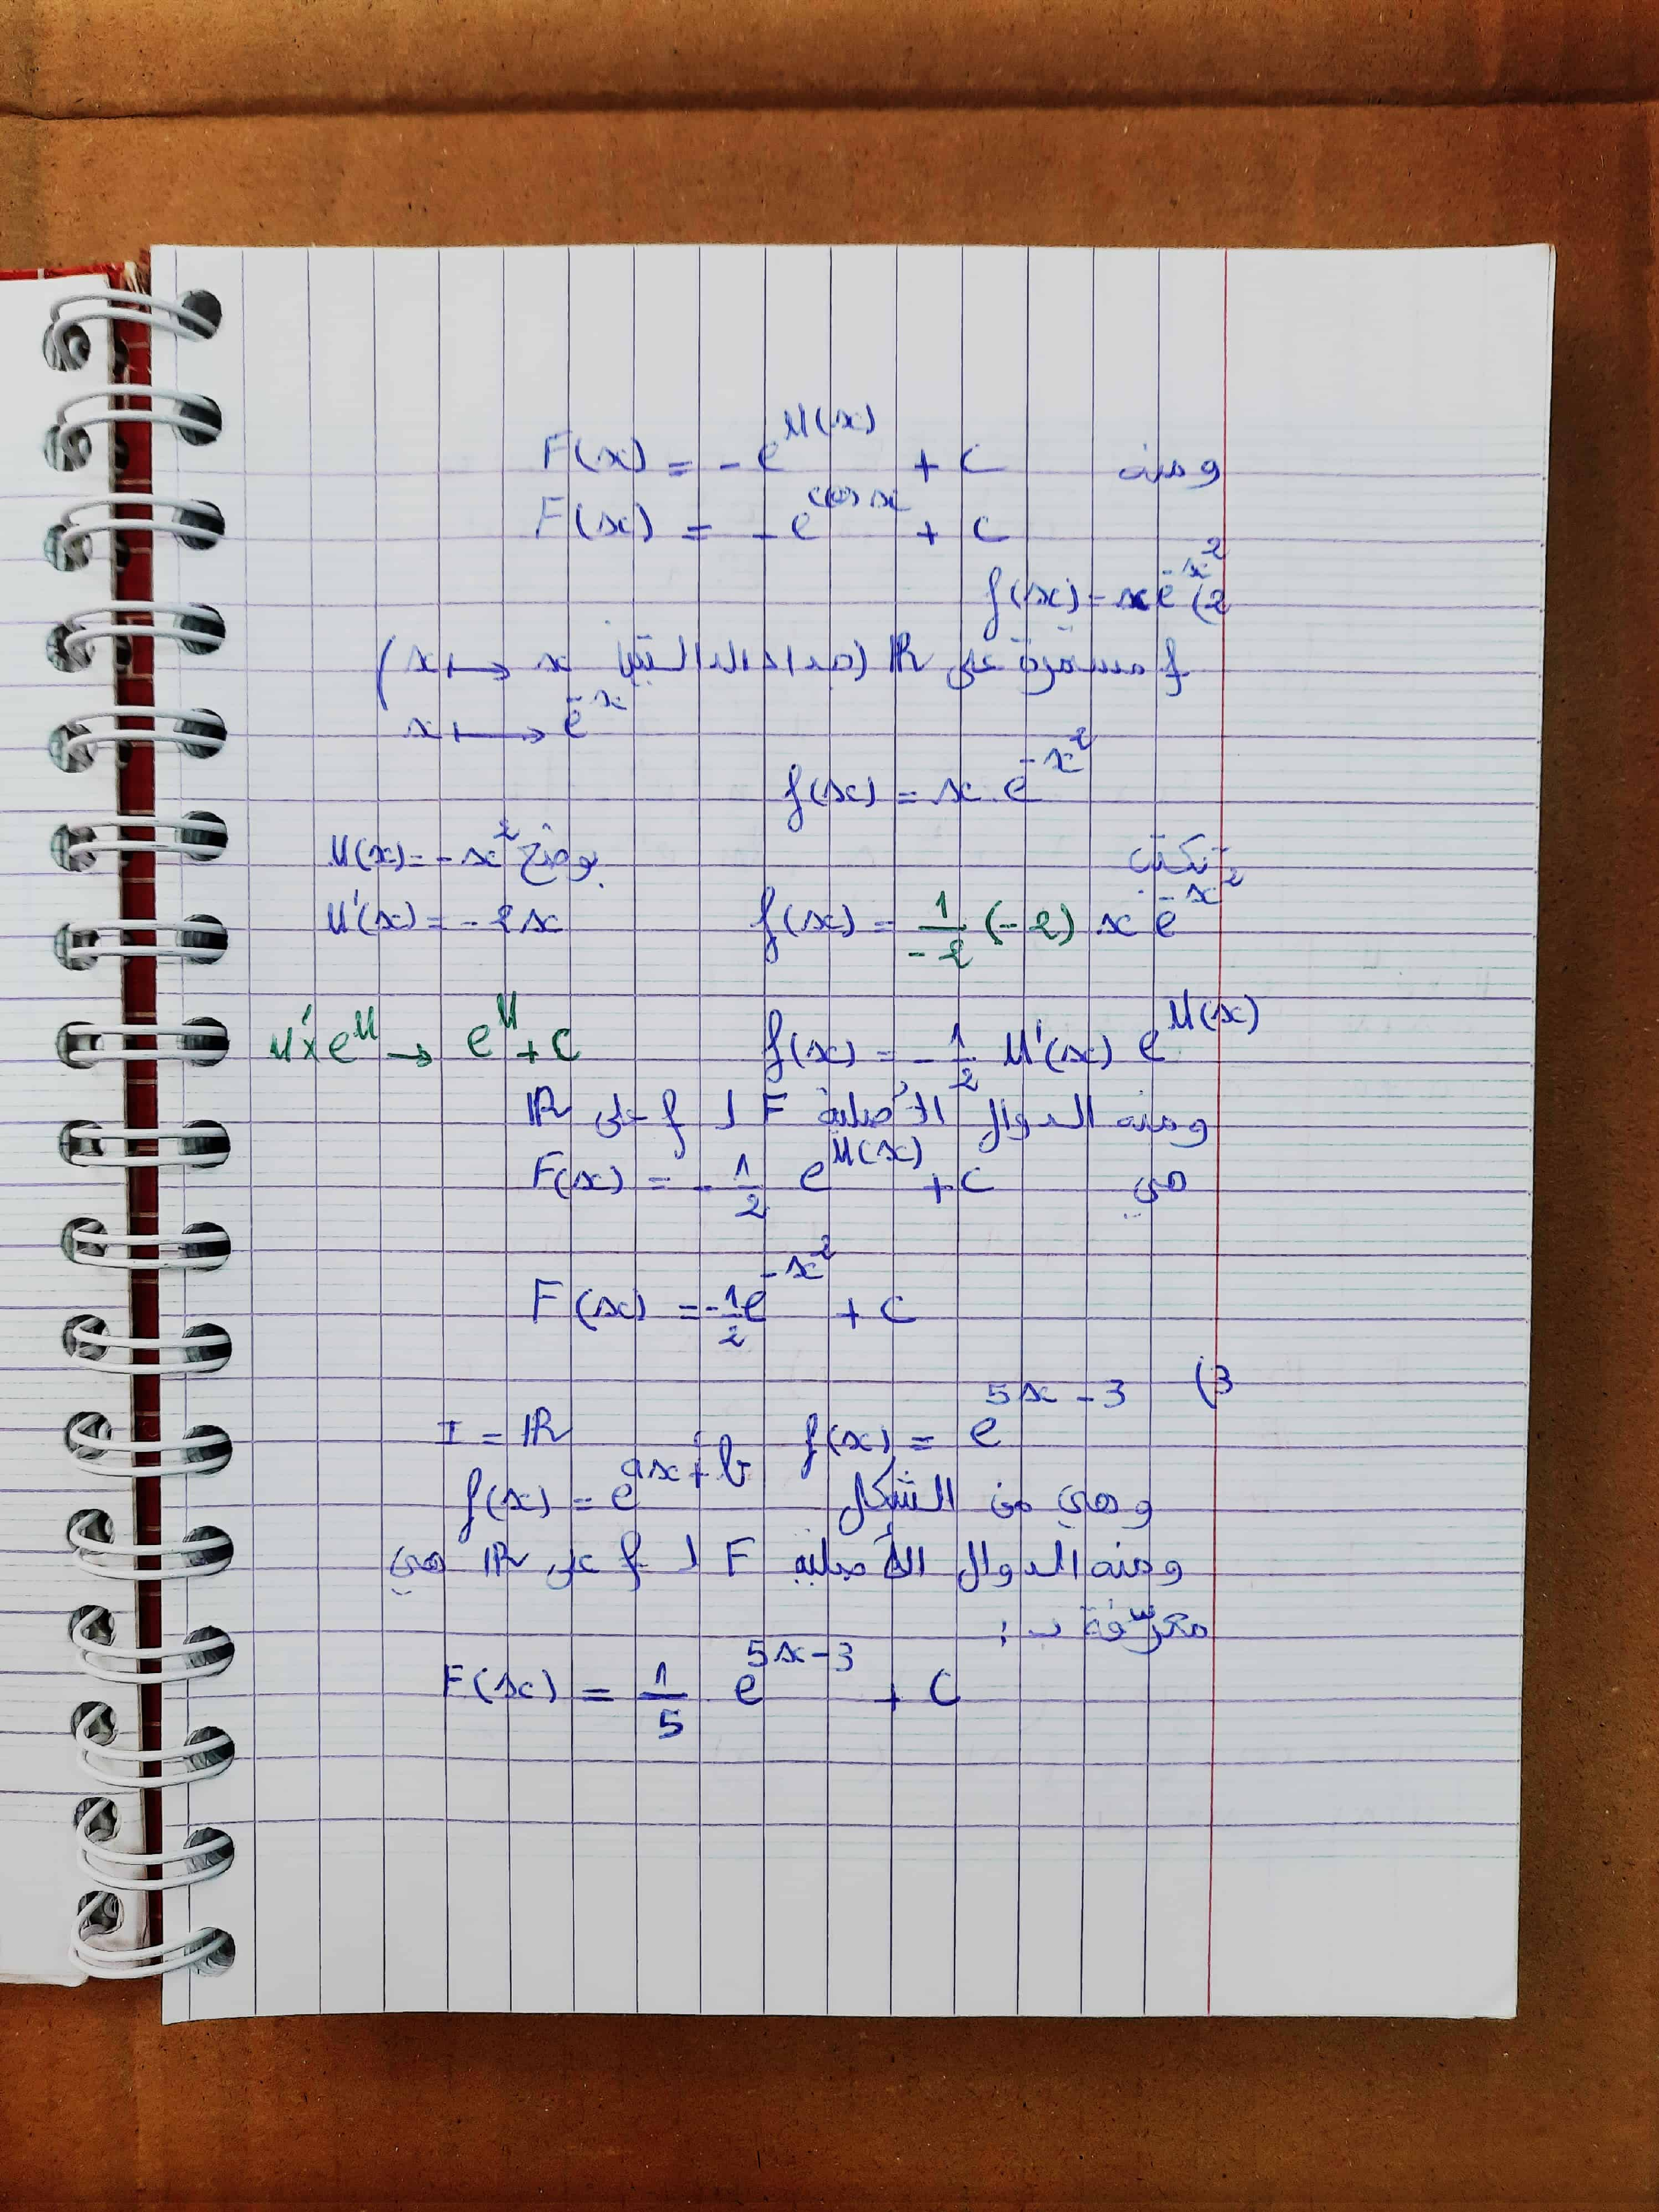 ومنه F(x) = - e^{U(x)} + C
F(x) = - e^{cos x} + C
2) f(x) = x e^{-x^2}
f مستمرة على ℝ (جداء الدالتين x ⟼ x
x ⟼ e^{-x})
f(x) = x . e^{-x^2}
تكتب بوضع U(x) = - x^2
f(x) = \frac{1}{-2} (-2) x e^{-x^2} U'(x) = - 2x
f(x) = - \frac{1}{2} U'(x) e^{U(x)} U' x e^U → e^U + C
ومنه الدوال الأصلية F ل f على ℝ
هي F(x) = - \frac{1}{2} e^{U(x)} + C
F(x) = - \frac{1}{2} e^{-x^2} + C
3)
f(x) = e^{5x - 3} I = ℝ
وهي من الشكل f(x) = e^{ax + b}
ومنه الدوال الأصلية F ل f على ℝ هي
معرّفة بـ :
F(x) = \frac{1}{5} e^{5x - 3} + C